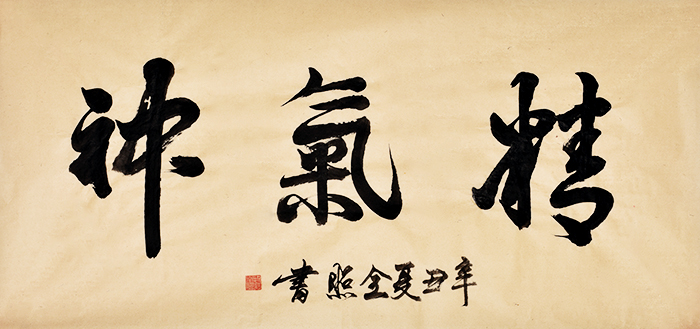 精氣神
辛丑夏全照書